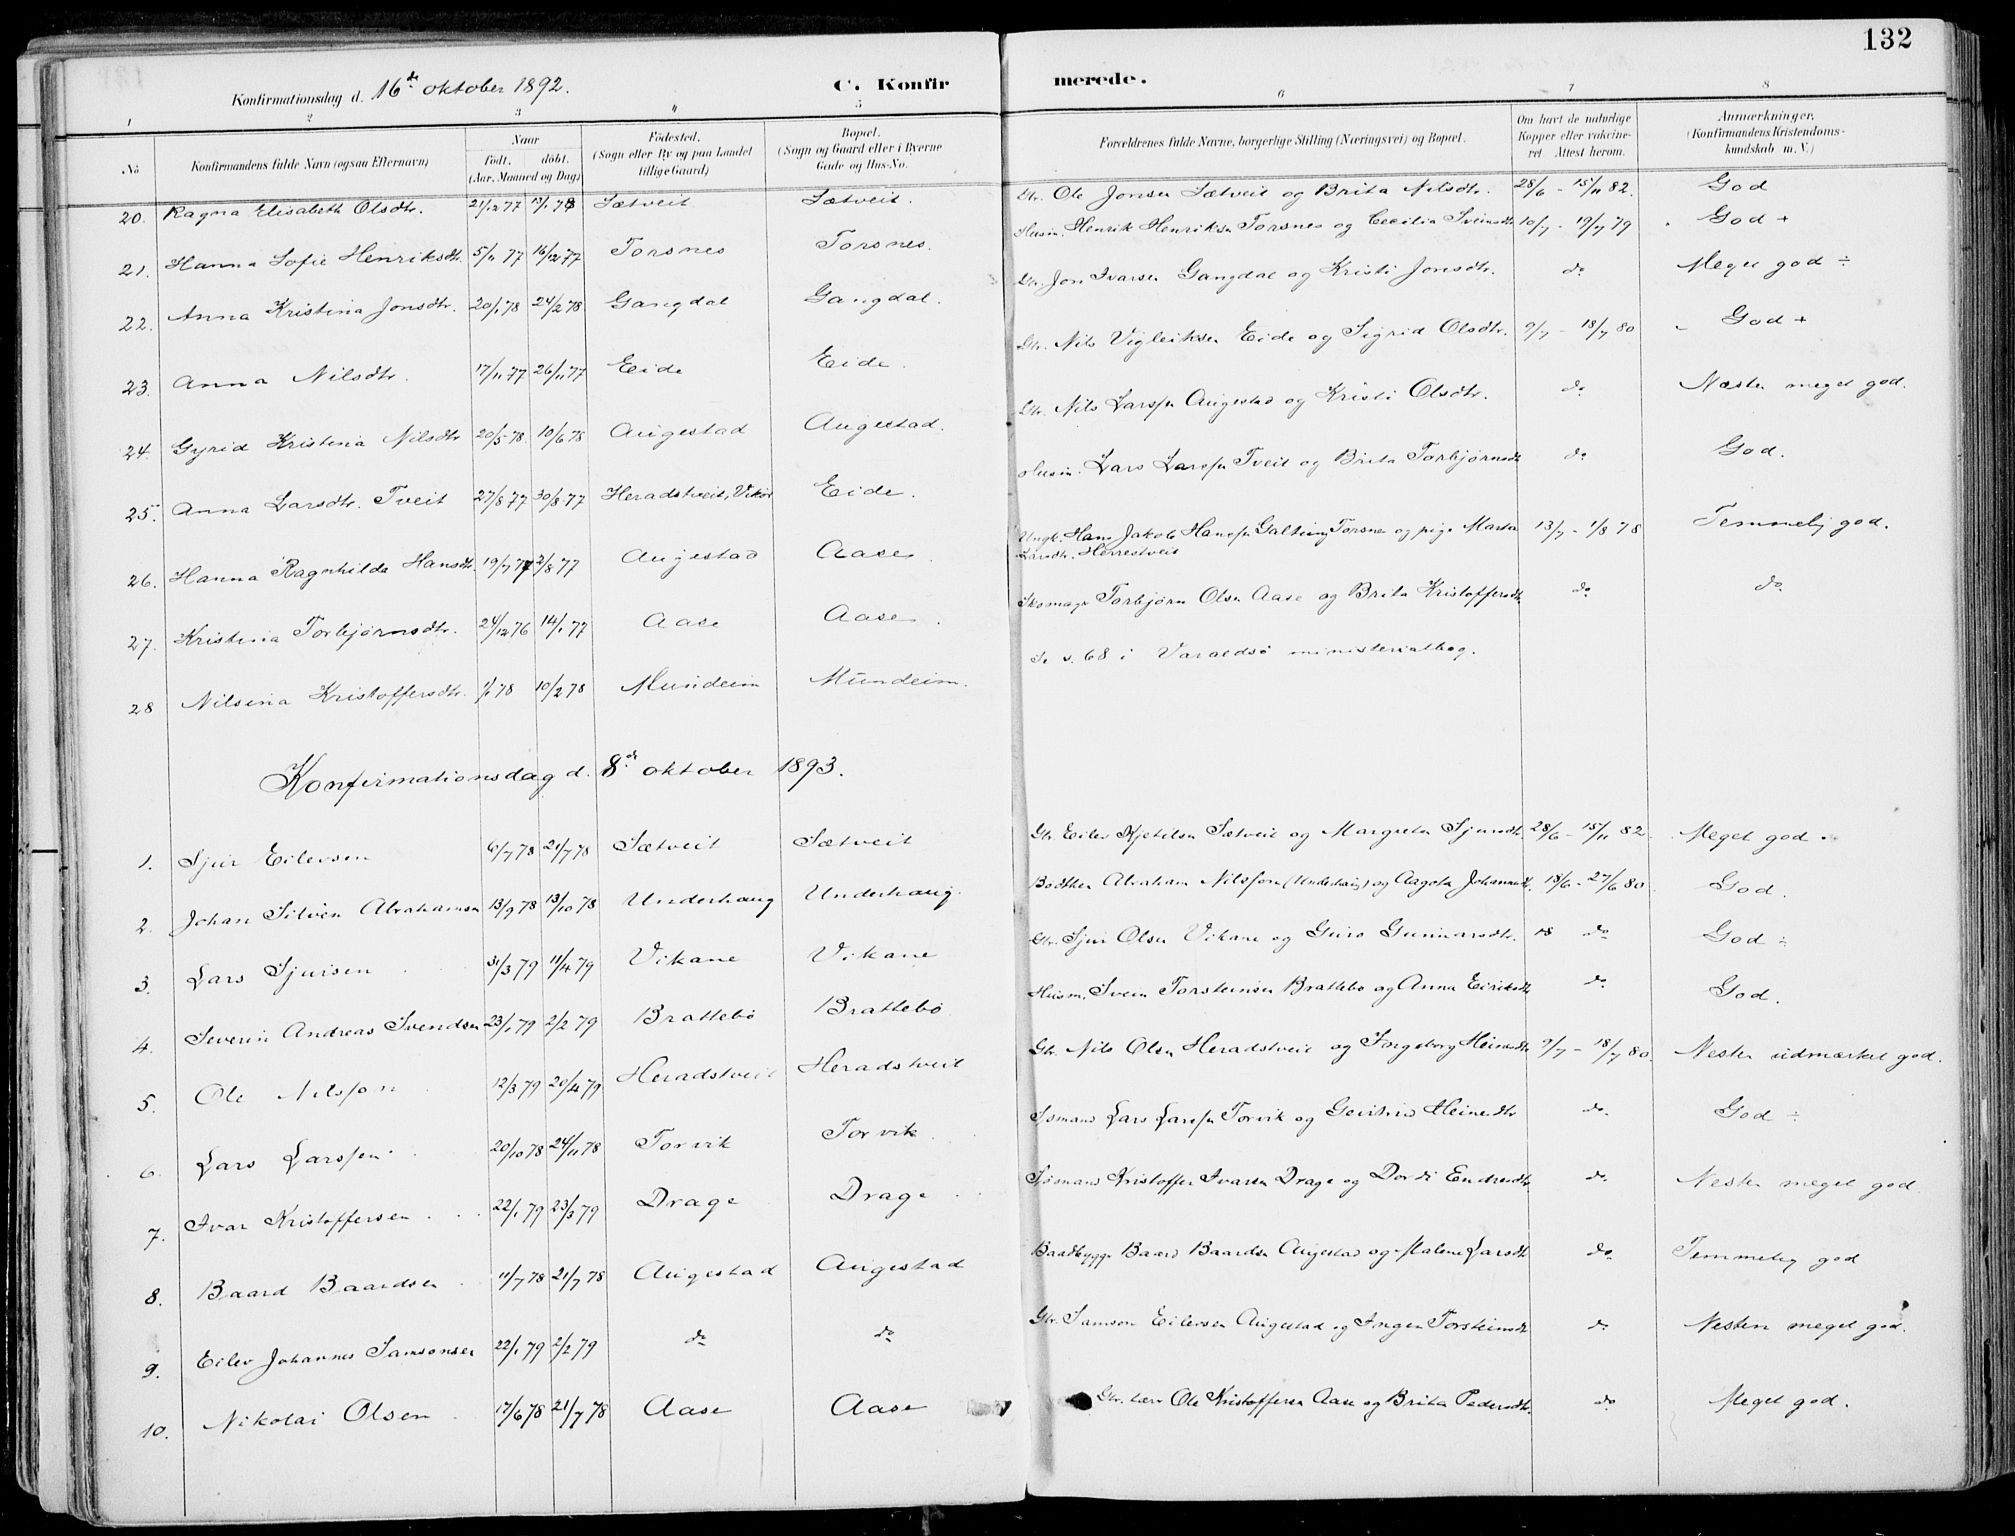 132
Konfirmationsdag d. 16de oktober 1892. C. Konfirmerede.
1 2 3 4 5 6 7 8
No
Konfirmandens fulde Navn (ogsaa Efternavn)
Naar
født. døbt.
(Aar, Maaned og Dag)
Födested.
(Sogn eller By og paa Landet tillige Gaard)
Bopæl.
(Sogn og Gaard eller i Byerne Gade og Hus-No.
Forældrenes fulde Navne, borgerlige Stilling (Næringsvei) og Bopæl.
Om havt de naturlige Kopper eller vakcineret. Attest herom.
Anmærkninger.
(Konfirmandens Kristendomskundskab m. V.)
20. Ragna Elisabeth Olsdtr. 21/12 77 13/1 78 Sætveit Sætveit. Gbr. Ole Jonsen Sætveit og Brita Nilsdtr. 28/6 - 15/11 82. God
21. Hanna Sofie Henriksdtr. 5/11 77 16/12 77 Torsnes Torsnes. Husm. Henrik Henriksen Torsnes og Cecilia Sveinsdtr 10/7 - 19/7 79 God +
22. Anna Kristina Jonsdtr. 20/1 78 24/2 78 Gangdal Gangdal. Gbr. Jon Ivarsen Gangdal og Kristi Jonsdtr. do Meget god ÷
23. Anna Nilsdtr. 17/11 77 26/11 77 Eide Eide. Gbr. Nils Vigleiksen Eide og Sigrid Olsdtr. 9/7 - 18/7 80 God +
24. Gyrid Kristina Nilsdtr 20/5 78. 10/6 78 Augestad Augestad. Gbr. Nils Larssen Augestad og Kristi Olsdtr. do Næsten meget god.
25. Anna Larsdtr. Tveit 27/8 77 30/8 77 Heradstveit, Vikør Eide. Husm. Lars Larssen Tveit og Brita Torbjørnsdtr do God.
26. Hanna Ragnhilda Hansdtr. 19/7 77 2/8 77 Augestad Aase Ungk. Hans Jakob Hanssen Galtung Torsnes og pige Marta Larsdtr. Herrestveit 13/7 - 1/8 78 Temmelig god.
27. Kristina Torbjørnsdtr. 24/12 76 14/1 77 Aase Aase. Skomager Torbjørn Olsen Aase og Brita Kristoffersdtr do do
28 Nilsina Kristoffersdtr. 1/1 78 10/2 78 Mundeim Mundeim. Se s. 68 i Varaldsø ministerialbog.
Konfirmationsdag d. 8de oktober 1893.
1. Sjur Eilevsen 6/7 78 21/7 78 Sætveit Sætveit Gbr. Eilev Kjetilsen Sætveit og Margreta Sjursdtr. 28/6 - 15/11 82. Meget god.
2. Johan Silvèn Abrahamsen 13/9 78 13/10 78 Underhaug Underhaug. Bødker Abraham Nilssøn (Underhaug) og Aagota Johannesdtr. 18/6 - 27/6 80. God.
3. Lars Sjursen 31/3 79 11/4 79 Vikane Vikane Gbr. Sjur Olsen Vikane og Guro Gunnarsdtr. 18 do God ÷
4. Severin Andreas Svendsen 23/1 79 2/2 79 Brattebø Brattebø Husm. Svein Torsteinsen Brattebø og Anna Eiriksdtr do God.
5. Ole Nilssøn 12/3 79 20/4 79 Heradstveit Heradstveit Gbr. Nils Olsen Heradstveit og Ingeborg Heinesdtr 9/7 - 18/7 80. Nesten udmærket god.
6. Lars Larssen 20/10 78 24/11 78 Torvik Torvik Sømand Lars Larssen Torvik og Gertrud Heinesdtr do. God ÷
7. Ivar Kristoffersen 22/1 79 23/3 79 Drage Drage Sømand Kristoffer Ivarsen Drage og Dordi Endresdtr do. Nesten meget god
8. Baard Baardsen 11/7 78 21/7 78 Augestad Augestad Baadbygger Baard Baardsen Augestad og Malene Larsdtr do Temmelig god
9. Eilev Johannes Samsonsen 22/1 79 2/2 79 do do Gbr. Samson Eilevsen Augestad og Inger Torsteinsdtr do Nesten meget god.
10. Nikolai Olsen 17/6 78 21/7 78 Aase Aase Gbr. Lærer Ole Kristoffersen Aase og Brita Pedersdtr. do Meget god.